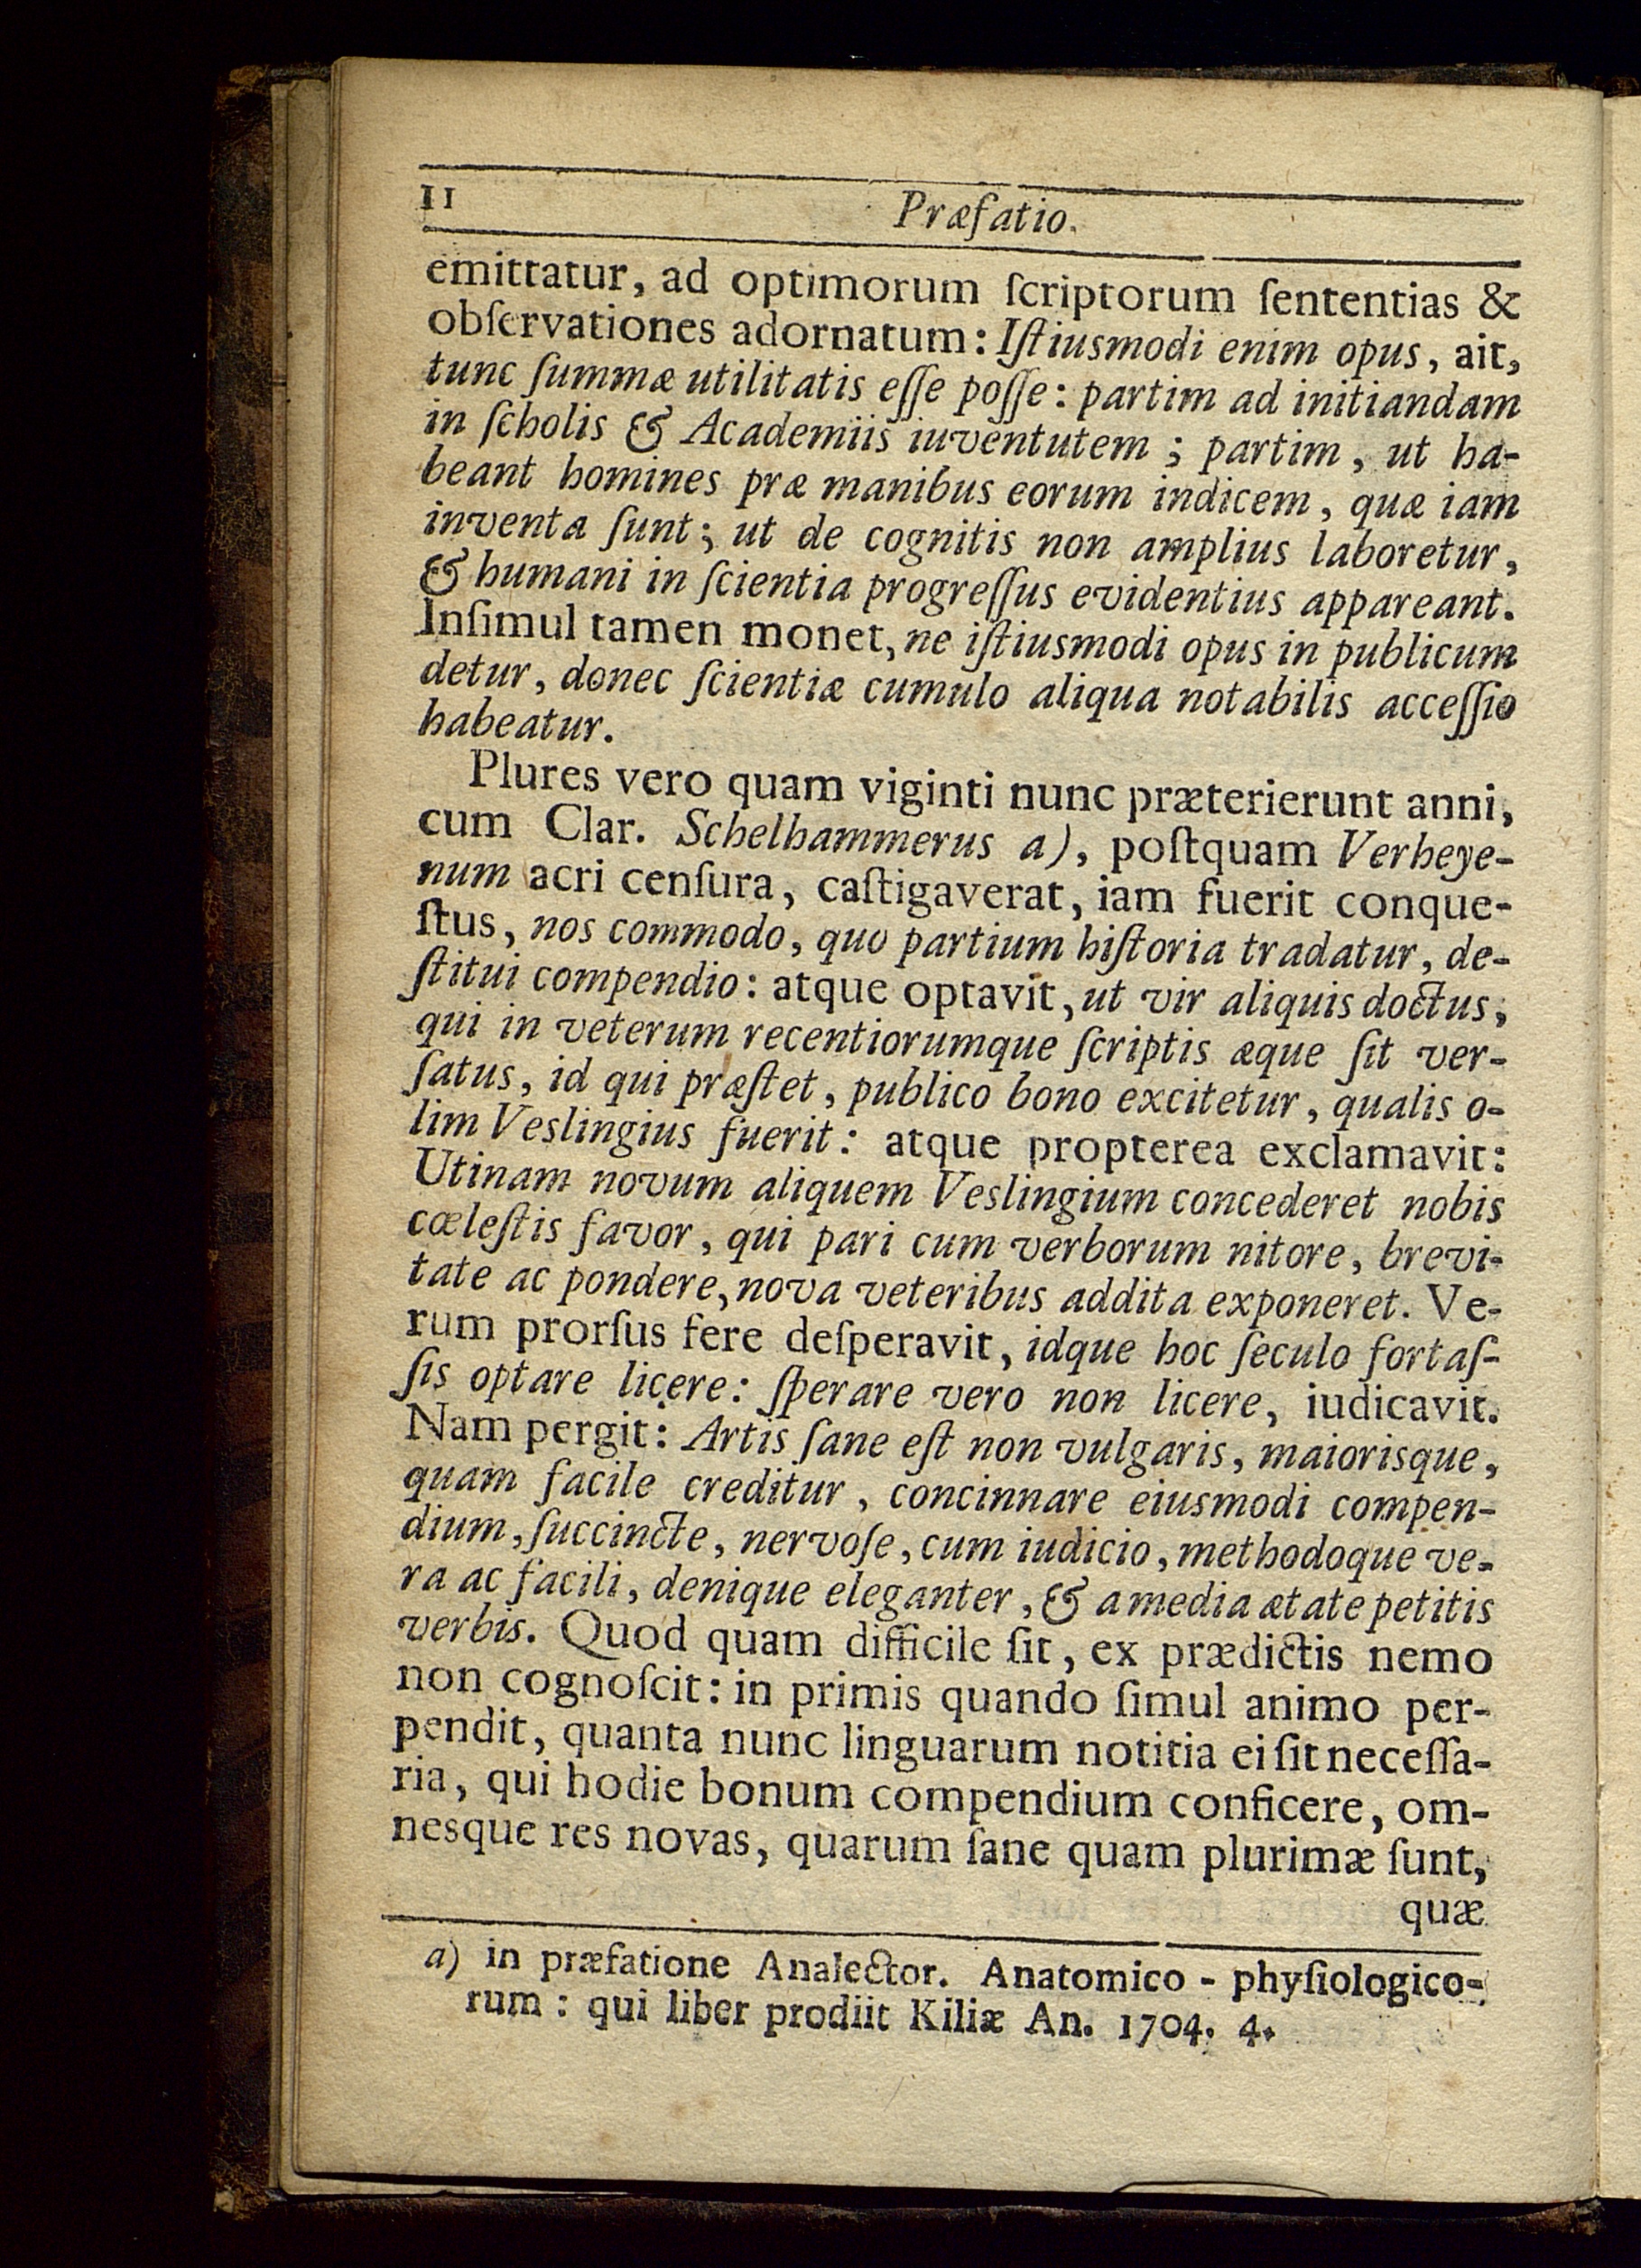 II
Præfatio.
emittatur, ad optimorum ſcriptorum ſententias &
obſervationes adornatum: Iſtiusmodi enim opus, ait,
tunc ſummæ utilitatis eſſe poſſe: partim ad initiandam
in ſcholis & Academiis iuventutem; partim, ut ha-
beant homines præ manibus eorum indicem, quæ iam
inventa ſunt; ut de cognitis non amplius laboretur,
& humani in ſcientia progreſſus evidentius appareant.
Inſimul tamen monet, ne iſtiusmodi opus in publicum
detur, donec ſcientiæ cumulo aliqua notabilis acceſſio
habeatur.
Plures vero quam viginti nunc præterierunt anni,
cum Clar. Schelhammerus a), poſtquam Verheye-
num acri cenſura, caſtigaverat, iam fuerit conque-
ſtus, nos commodo, quo partium hiſtoria tradatur, de-
ſtitui compendio: atque optavit, ut vir aliquis doctus,
qui in veterum recentiorumque ſcriptis æque ſit ver-
ſatus, id qui præſtet, publico bono excitetur, qualis o-
lim Veslingius fuerit: atque propterea exclamavit:
Utinam novum aliquem Veslingium concederet nobis
cœleſtis favor, qui pari cum verborum nitore, brevi-
tate ac pondere, nova veteribus addita exponeret. Ve-
rum prorſus fere deſperavit, idque hoc ſeculo fortaſ-
ſis optare licere: ſperare vero non licere, iudicavit.
Nam pergit: Artis ſane eſt non vulgaris, maiorisque,
quam facile creditur, concinnare eiusmodi compen-
dium, ſuccincte, nervoſe, cum iudicio, methodoque ve-
ra ac facili, denique eleganter, & a media ætate petitis
verbis. Quod quam difficile ſit, ex prædictis nemo
non cognoſcit: in primis quando ſimul animo per-
pendit, quanta nunc linguarum notitia ei ſit neceſſa-
ria, qui hodie bonum compendium conficere, om-
nesque res novas, quarum ſane quam plurimæ ſunt,
quæ
a) in præfatione Analector. Anatomico-phyſiologico-
rum: qui liber prodiit Kiliæ An. 1704. 4.